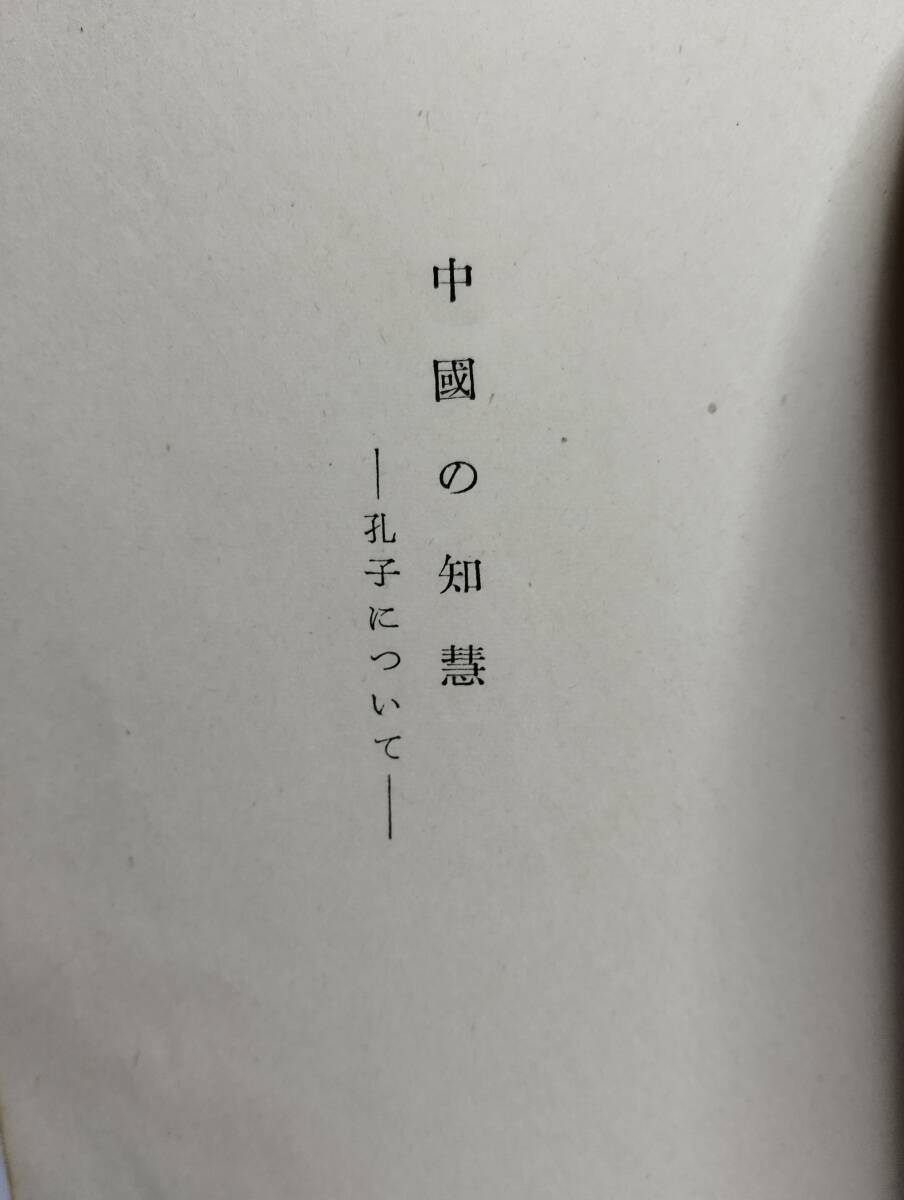 中國の知慧
―孔子について―